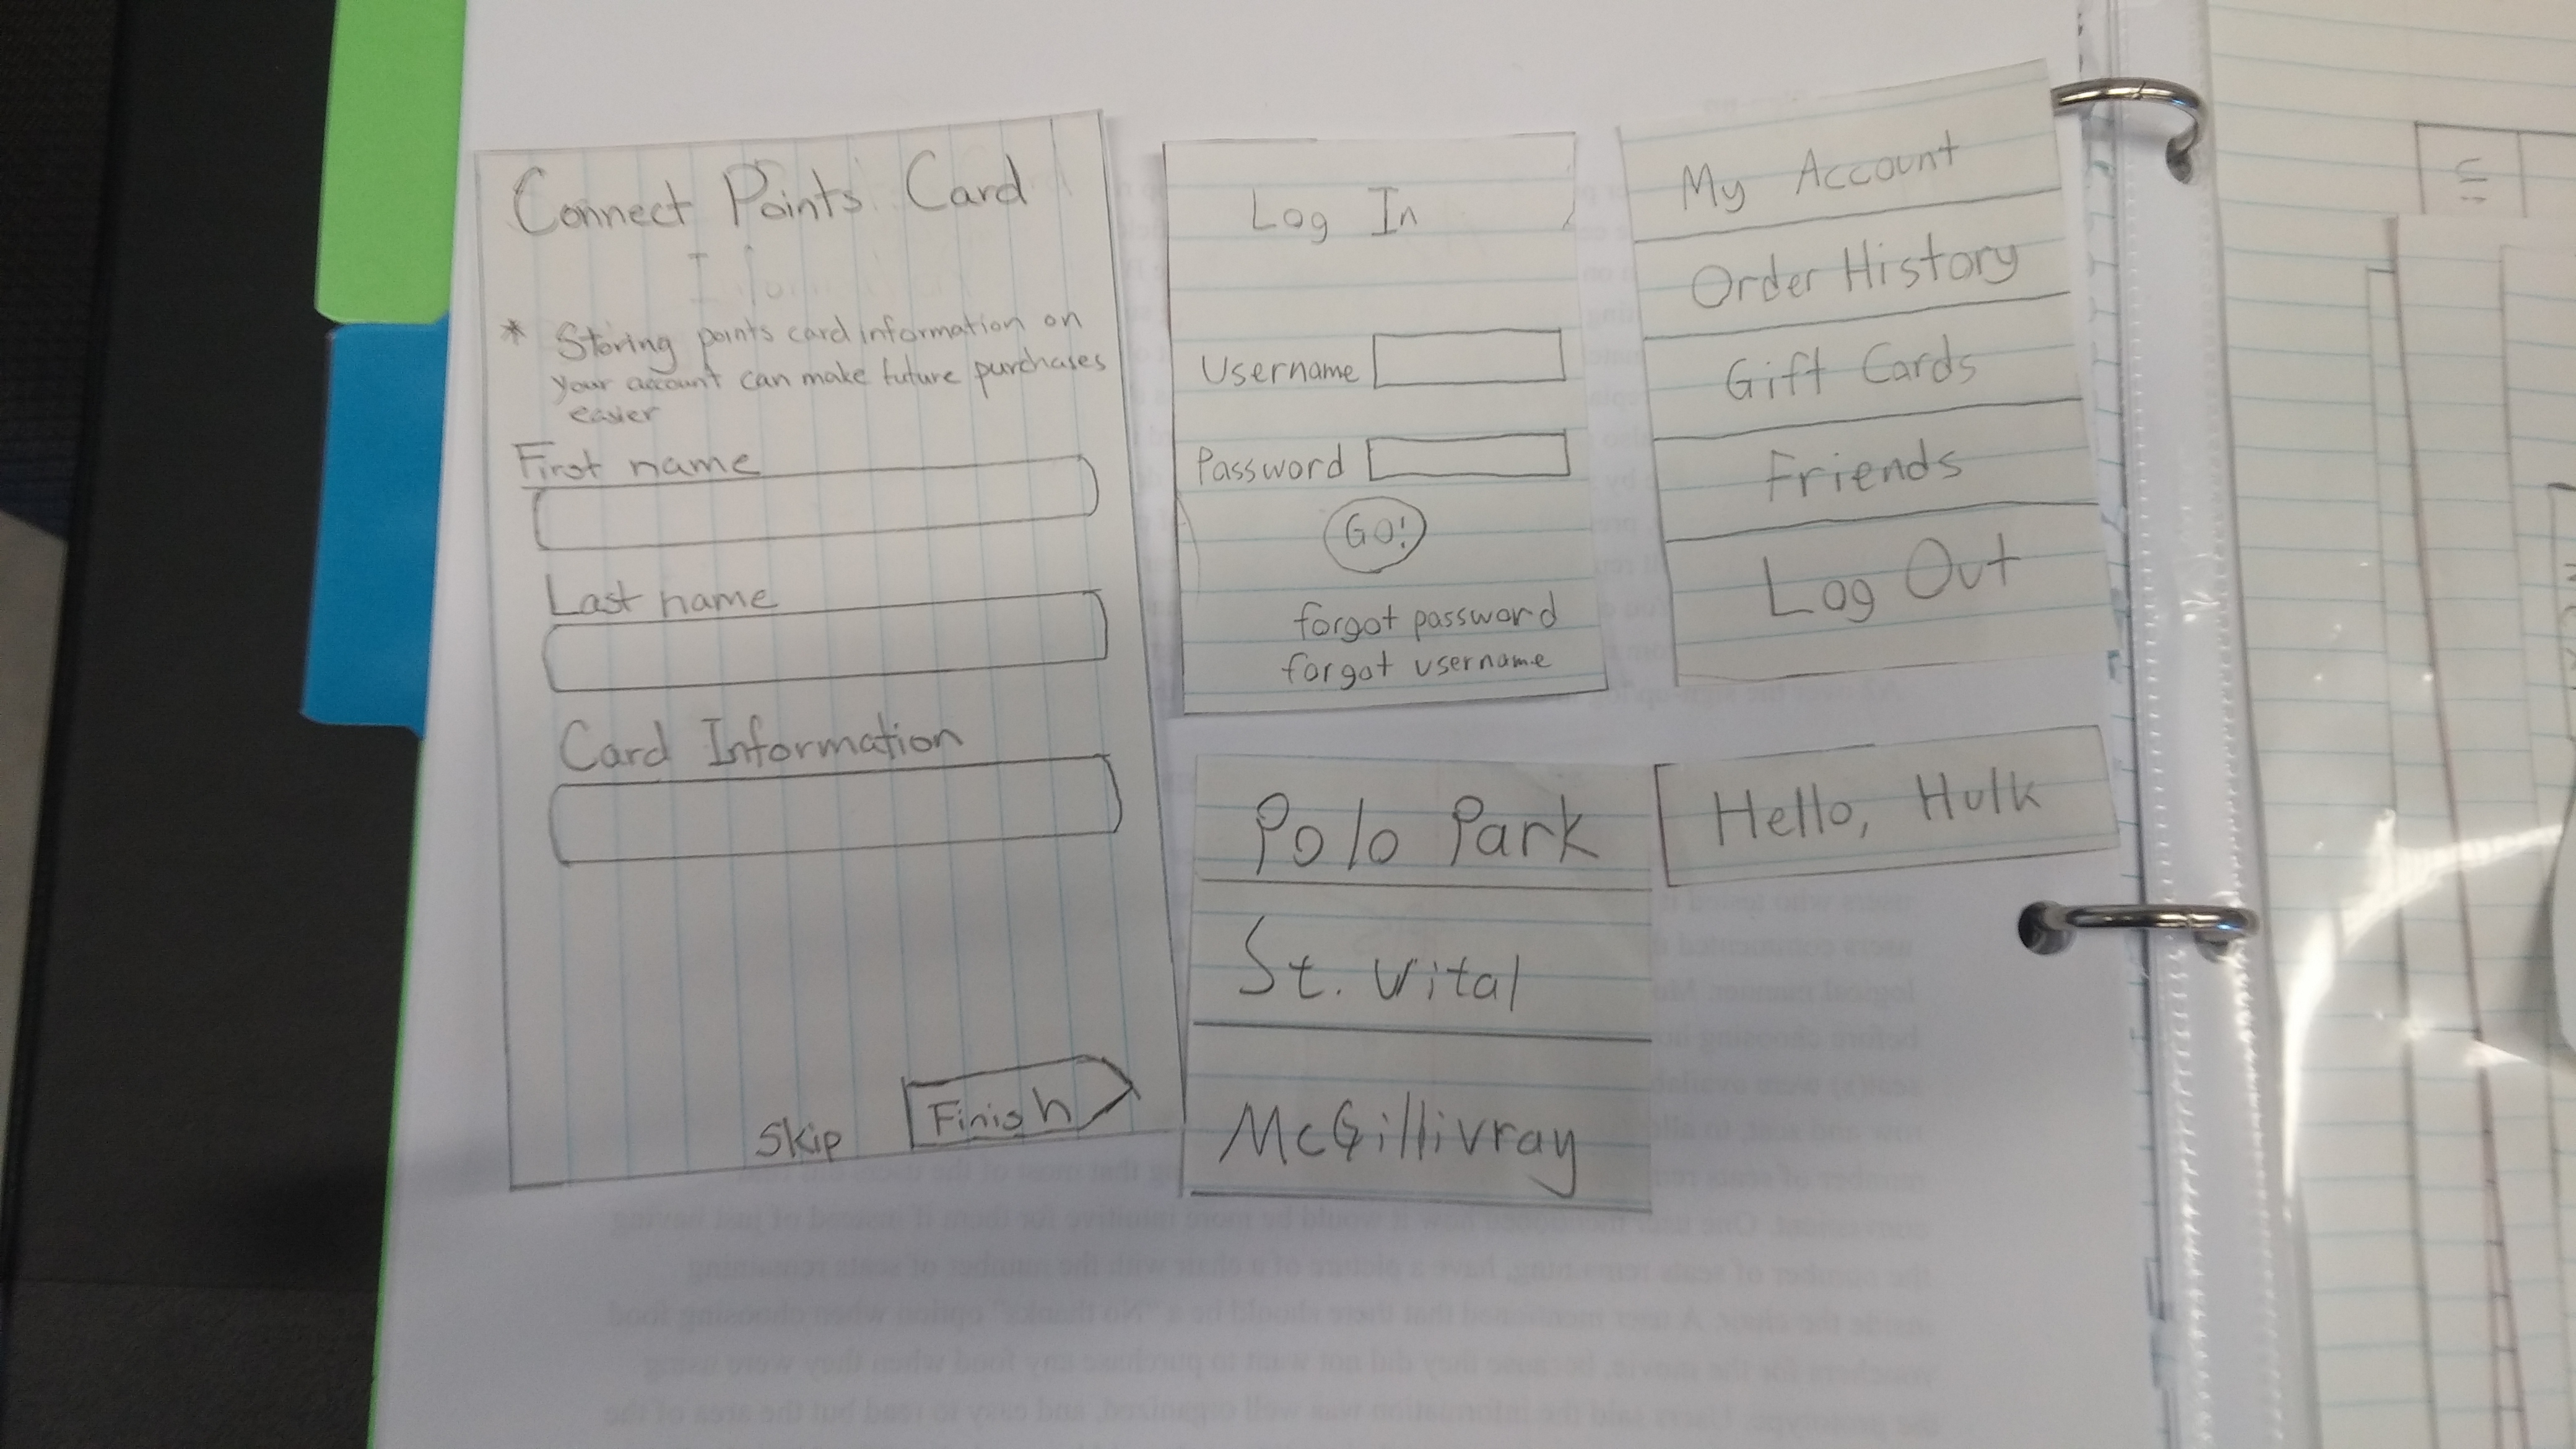 Connect Points Card
* Storing points card information on
your account can make future purchases
easier
First name
Last name
Card Information
Skip
Finish
Log In
Username
Password
GO!
forgot password
forgot username
My Account
Order History
Gift Cards
Friends
Log Out
Polo Park
St. Vital
McGillivray
Hello, Hulk